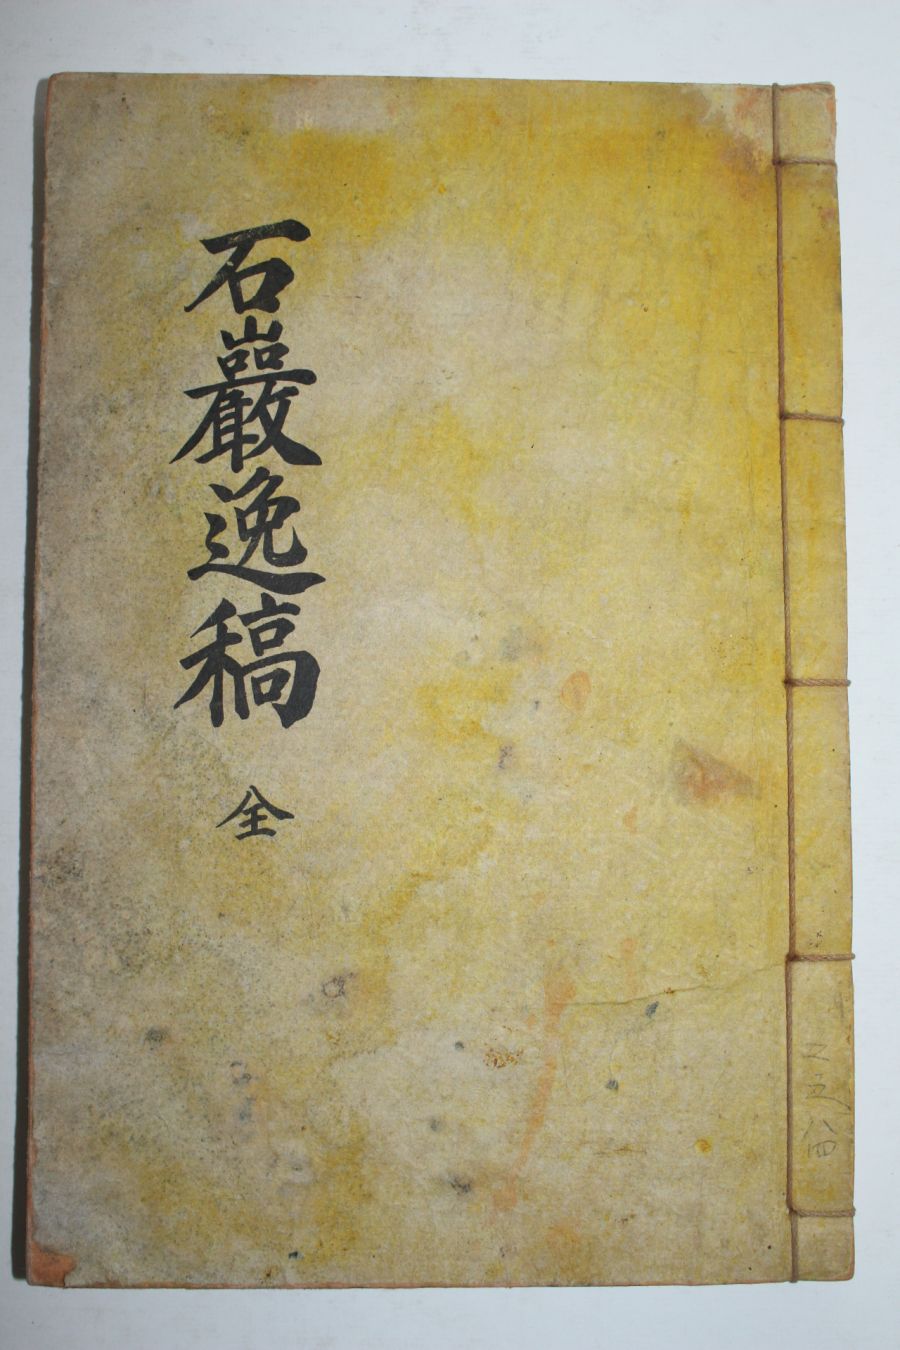 石巖逸稿
全